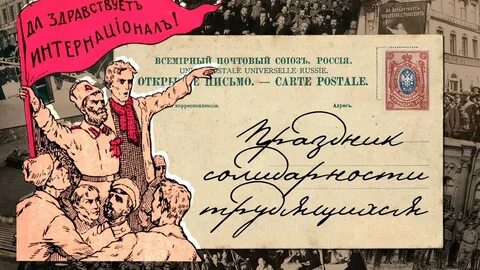 ДА ЗДРАВСТВУЕТЪ
ИНТЕРНАЦІОНАЛЪ!
ВСЕМІРНЫЙ ПОЧТОВЫЙ СОЮЗЪ. РОССІЯ.
UNION POSTALE UNIVERSELLE RUSSIE.
ОТКРЫТОЕ ПИСЬМО. — CARTE POSTALE.
Адресъ.
Праздник
солидарности
трудящихся